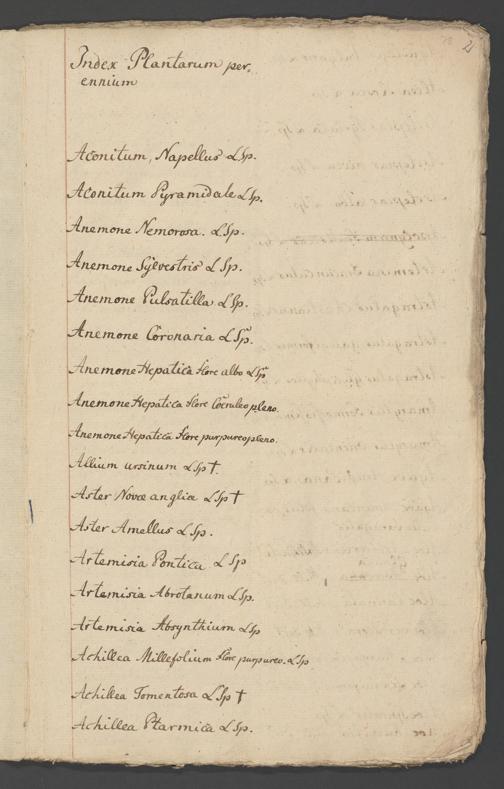 2
Index Plantarum per,
ennium
Aconitum, Napellus L Sp.
Aconitum Pyramidale L Sp.
Anemone Nemorosa. L Sp.
Anemone Sylvestris L Sp.
Anemone Pulsatilla L Sp.
Anemone Coronaria L Sp.
Anemone Hepatica flore albo L Sp
Anemone Hepatica flore Cœruleo pleno.
Anemone Hepatica flore purpureo pleno.
Allium ursinum L Sp †.
Aster Novæ angliæ L Sp †
Aster Amellus L Sp.
Artemisia Pontica L Sp
Artemisia Abrotanum L Sp.
Artemisia Absynthium L Sp
Achillea Millefolium flore purpureo. L Sp
Achillea Tomentosa L Sp †
Achillea Ptarmica L Sp.